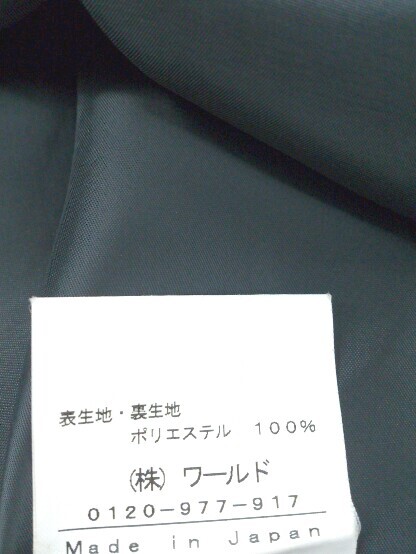 表生地・裏生地
ポリエステル 100%
(株) ワールド
0120-977-917
Made in Japan